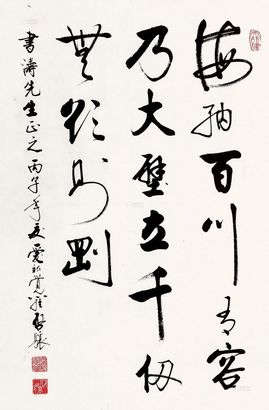 海納百川有容
乃大壁立千仞
無欲則剛
書濤先生正之丙子年夏愛新覺羅啟驤